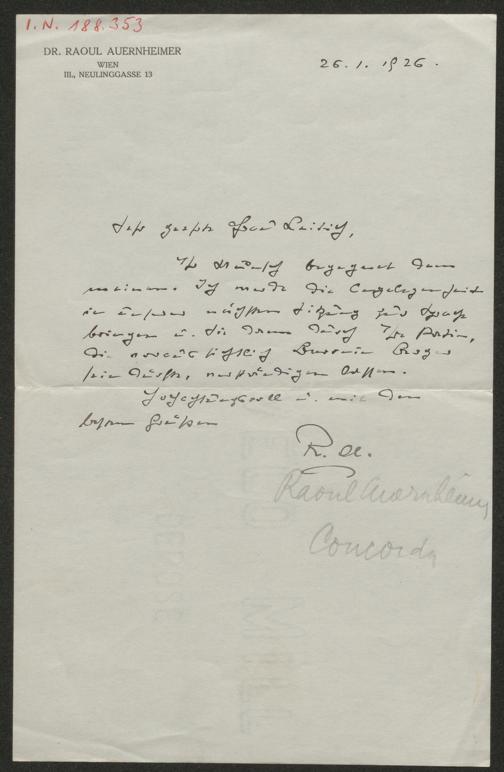 I.N. 188.353
DR. RAOUL AUERNHEIMER
WIEN
III., NEULINGGASSE 13
26. 1. 1926.
Sehr geehrte Frau Leitich,
Ihr Wunsch begegnet dem
meinen. Ich werde die Angelegenheit
in unserer nächsten Sitzung zur Sprache
bringen u. Sie dann durch Ihre Patin,
die voraussichtlich Baronin Berger
sein dürfte, verständigen lassen.
Hochachtungsvoll u. mit den
besten Grüßen
R. A.
Raoul Auernheimer
Concordia